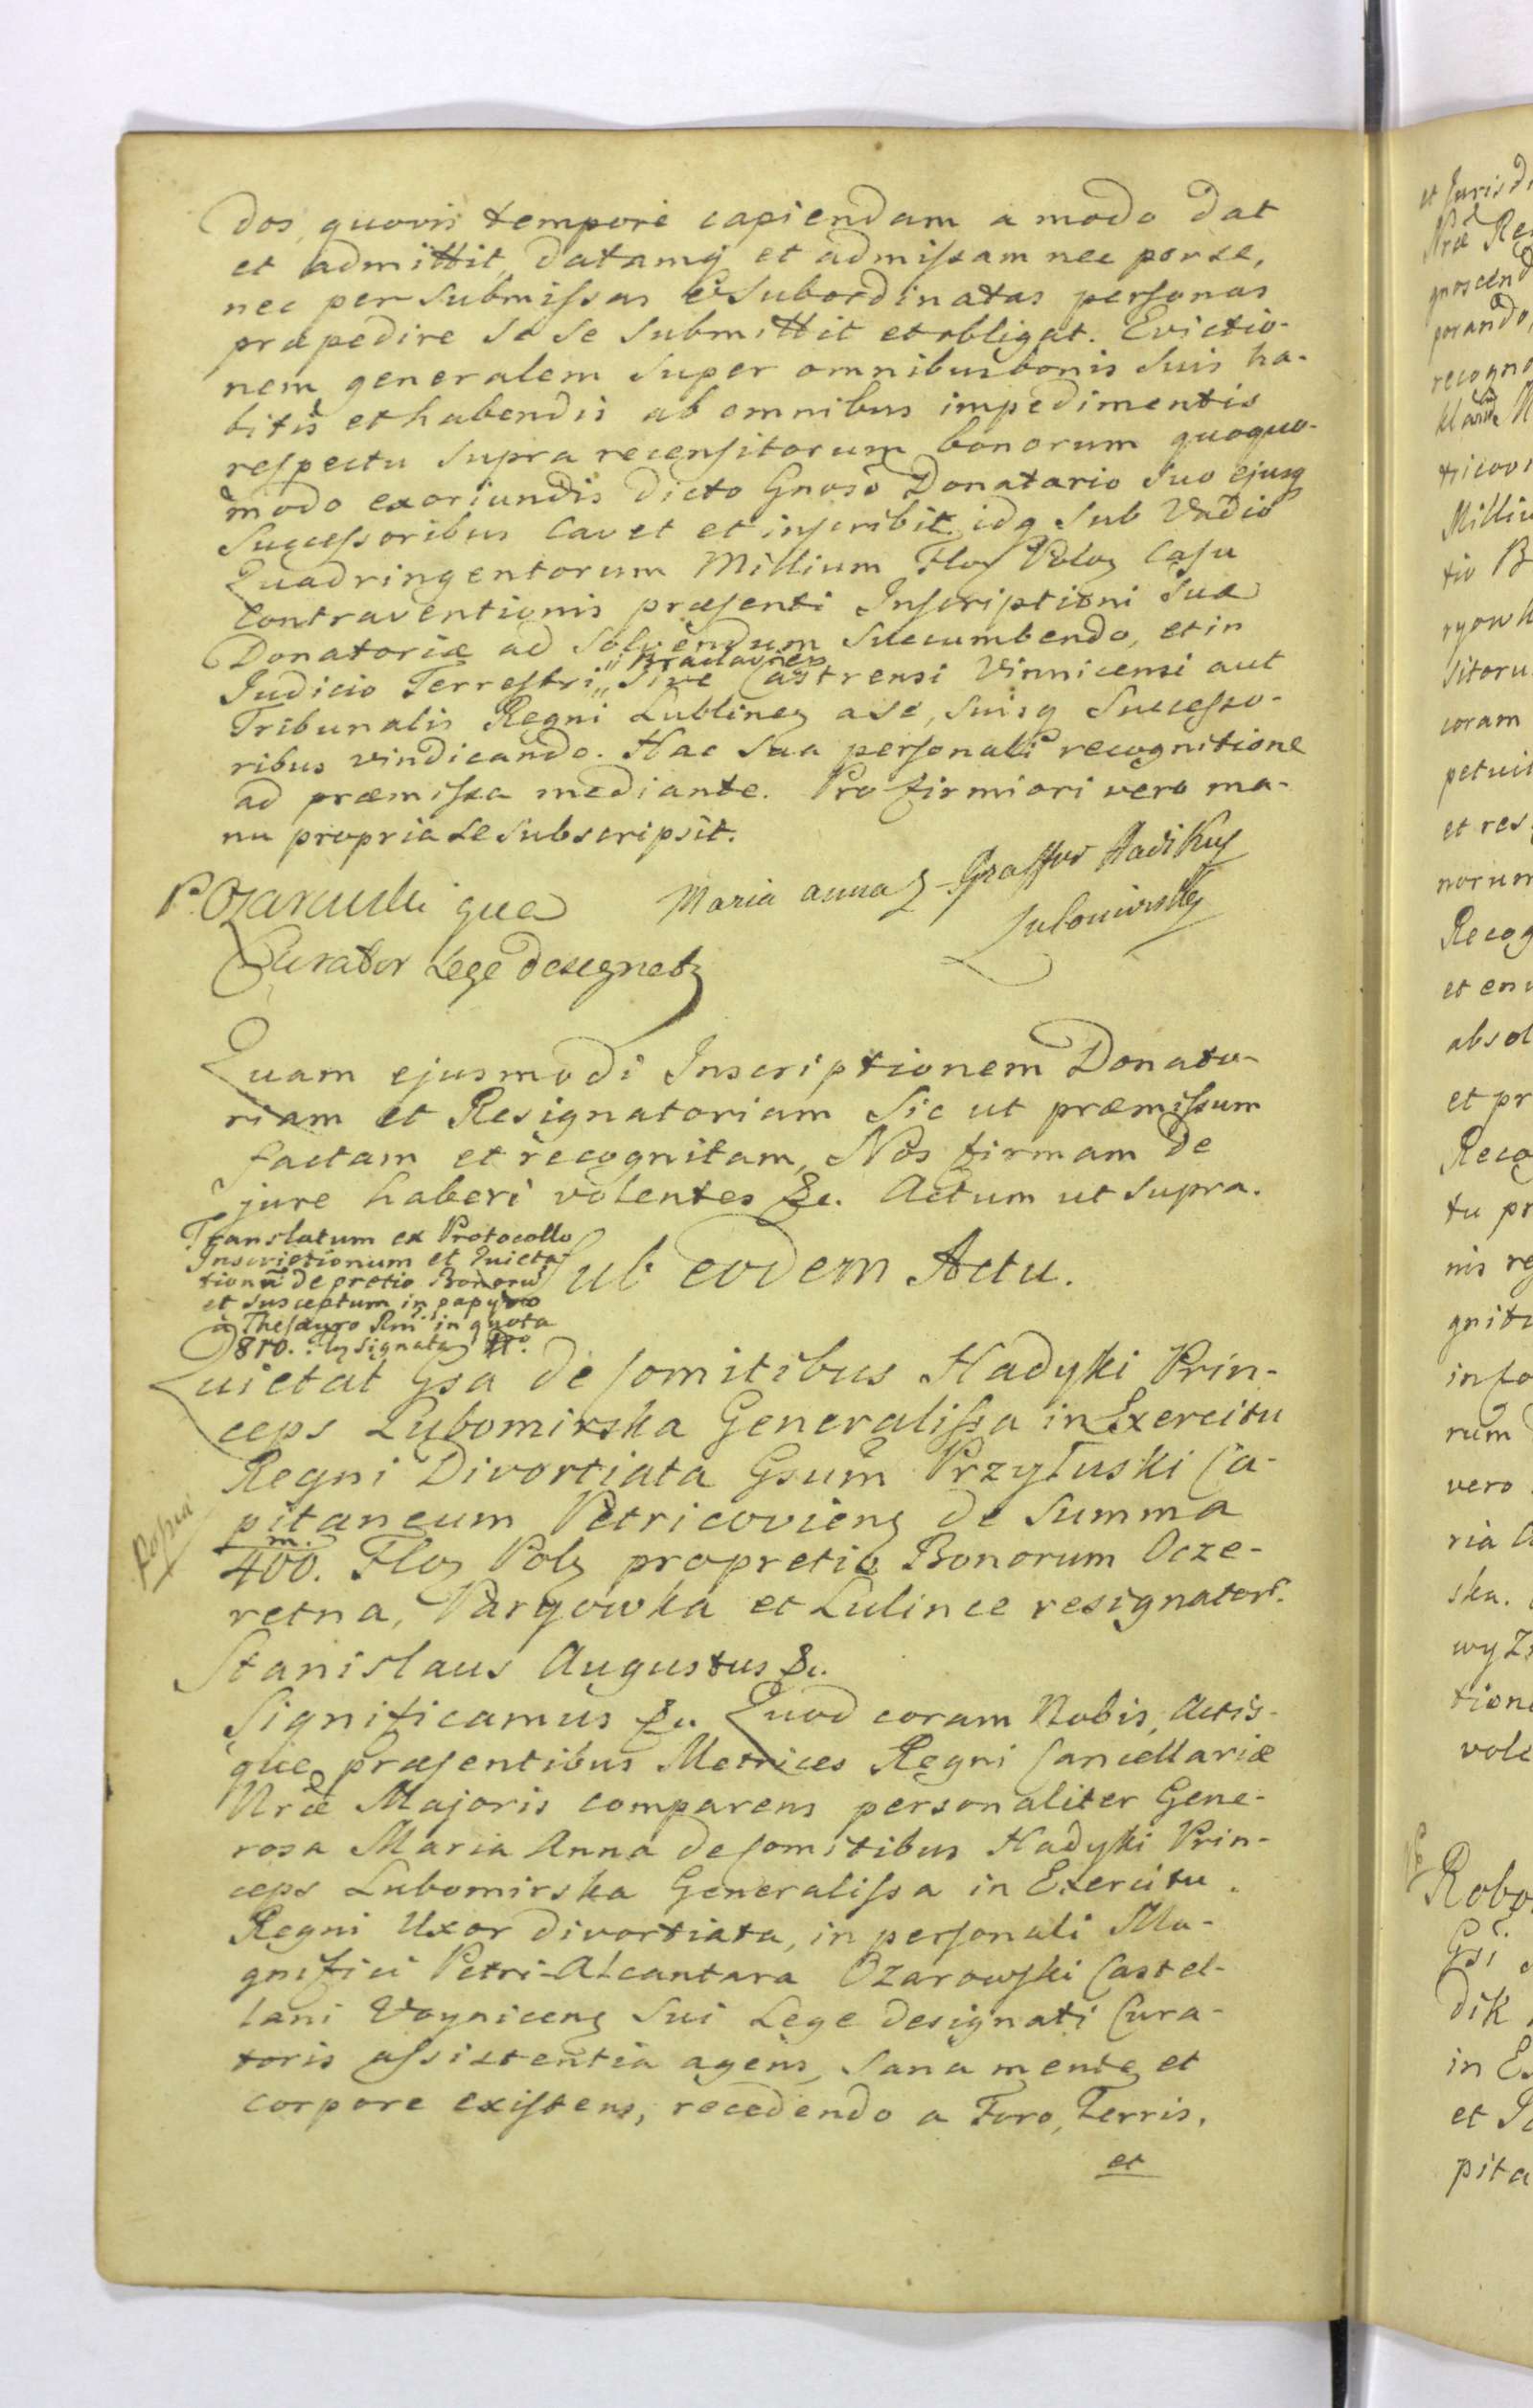 dos, quovis tempore capiendam a modo dat
et admittit, datamq et admissam nec per se,
nec per submissas & subordinatas personas
præpedire se se submittit et obligat. Evictio-
nem generalem super omnibus bonis suis ha-
bitis et habendis ab omnibus impedimentis
respectu supra recensitorum bonorum quoquo-
modo exoriundis dicto Gnoso Donatario suo ejusq
Successoribus Cavet et inscribit idq sub Vadio
Quadringentorum Millium Flor Polon Casu
Contraventionis præsenti Inscriptioni suæ
Donatoriæ ad solvendum succumbendo, et in
Judicio Terrestri „Braclavien„ sive Castrensi Vinnicensi aut
Tribunalis Regni Lublinen a se, suisq Successo-
ribus vindicando. Hac sua personali recognitione
ad præmissa mediante. Pro firmiori vero ma-
nu propria se subscripsit.
P. Ozarowski qua
Maria anna Graffin Hadik
Lubomirska
Curator Lege designat
Quam ejusmodi Inscriptionem Donato-
riam et Resignatoriam sic ut præmissum
factam et recognitam, Nos firmam de
jure haberi volentes &c. Actum ut supra.
Translatum ex Protocollo
Inscriptionum et Quieta
tionũ de pretio Bonorũ
et susceptum in papyro
à Thesauro Rni in quota
810. Fl signata
Sub eodem Actu.
Quietat Gsa de Comitibus Hadyki Prin-
ceps Lubomirska Generalissa in Exercitu
Regni Divortiata Gsum Przyłuski Ca-
pitaneum Petricovien de Summa
400.m. Flor Pol pro pretio Bonorum Ocze-
retna, Paryowka et Lulince resignator.
Stanislaus Augustus &c.
Significamus &c. Quod coram Nobis, Actis-
que præsentibus Metrices Regni Cancellariæ
Nræ Majoris comparens personaliter Gene-
rosa Maria Anna de Comitibus Hadyki Prin-
ceps Lubomirska Generalissa in Exercitu
Regni Uxor divortiata, in personali Ma-
gnifici Petri-Alcantara Ozarowski Castel-
lani Voynicens sui Lege designati Cura-
toris assistentia agens, sana mente et
corpore existens, recedendo a Foro, Terris,
et